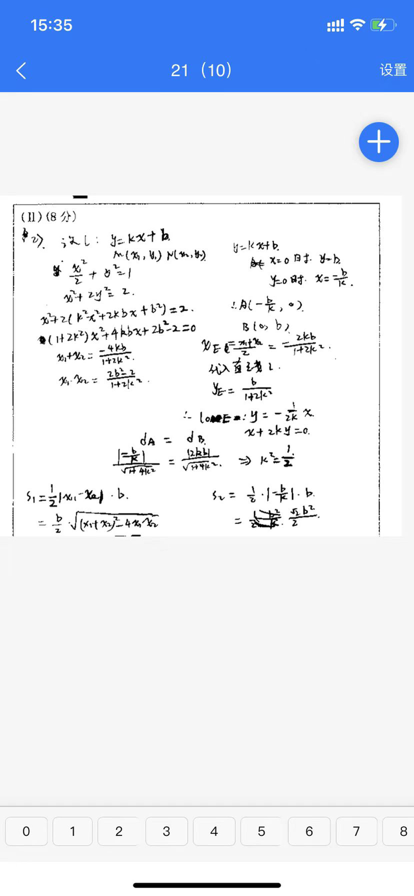 15:35
21（10）
设置
(II) (8分)
(2). 设 l: y=kx+b.
M(x₁,y₁) N(x₂,y₂)
x²/2 + y²=1
x²+2y²=2.
x²+2(k²x²+2kbx+b²)=2.
(1+2k²)x²+4kbx+2b²-2=0
x₁+x₂= -4kb/(1+2k²)
x₁·x₂= (2b²-2)/(1+2k²).
y=kx+b.
x=0时. y=b.
y=0时. x=-b/k.
∴A(-b/k, 0)
B(0, b)
x_E= (x₁+x₂)/2 = -2kb/(1+2k²).
代入直线 l.
y_E= b/(1+2k²)
∴ l_OE: y=-1/(2k) x
x+2ky=0.
d_A = d_B
|-b/k|/√(1+4k²) = |2kb|/√(1+4k²) ⇒ k²=1/2
S₁=1/2|x₁-x₂|·b.
= b/2·√((x₁+x₂)²-4x₁x₂)
S₂= 1/2·|-b/k|·b.
= √2b²/2
0 1 2 3 4 5 6 7 8